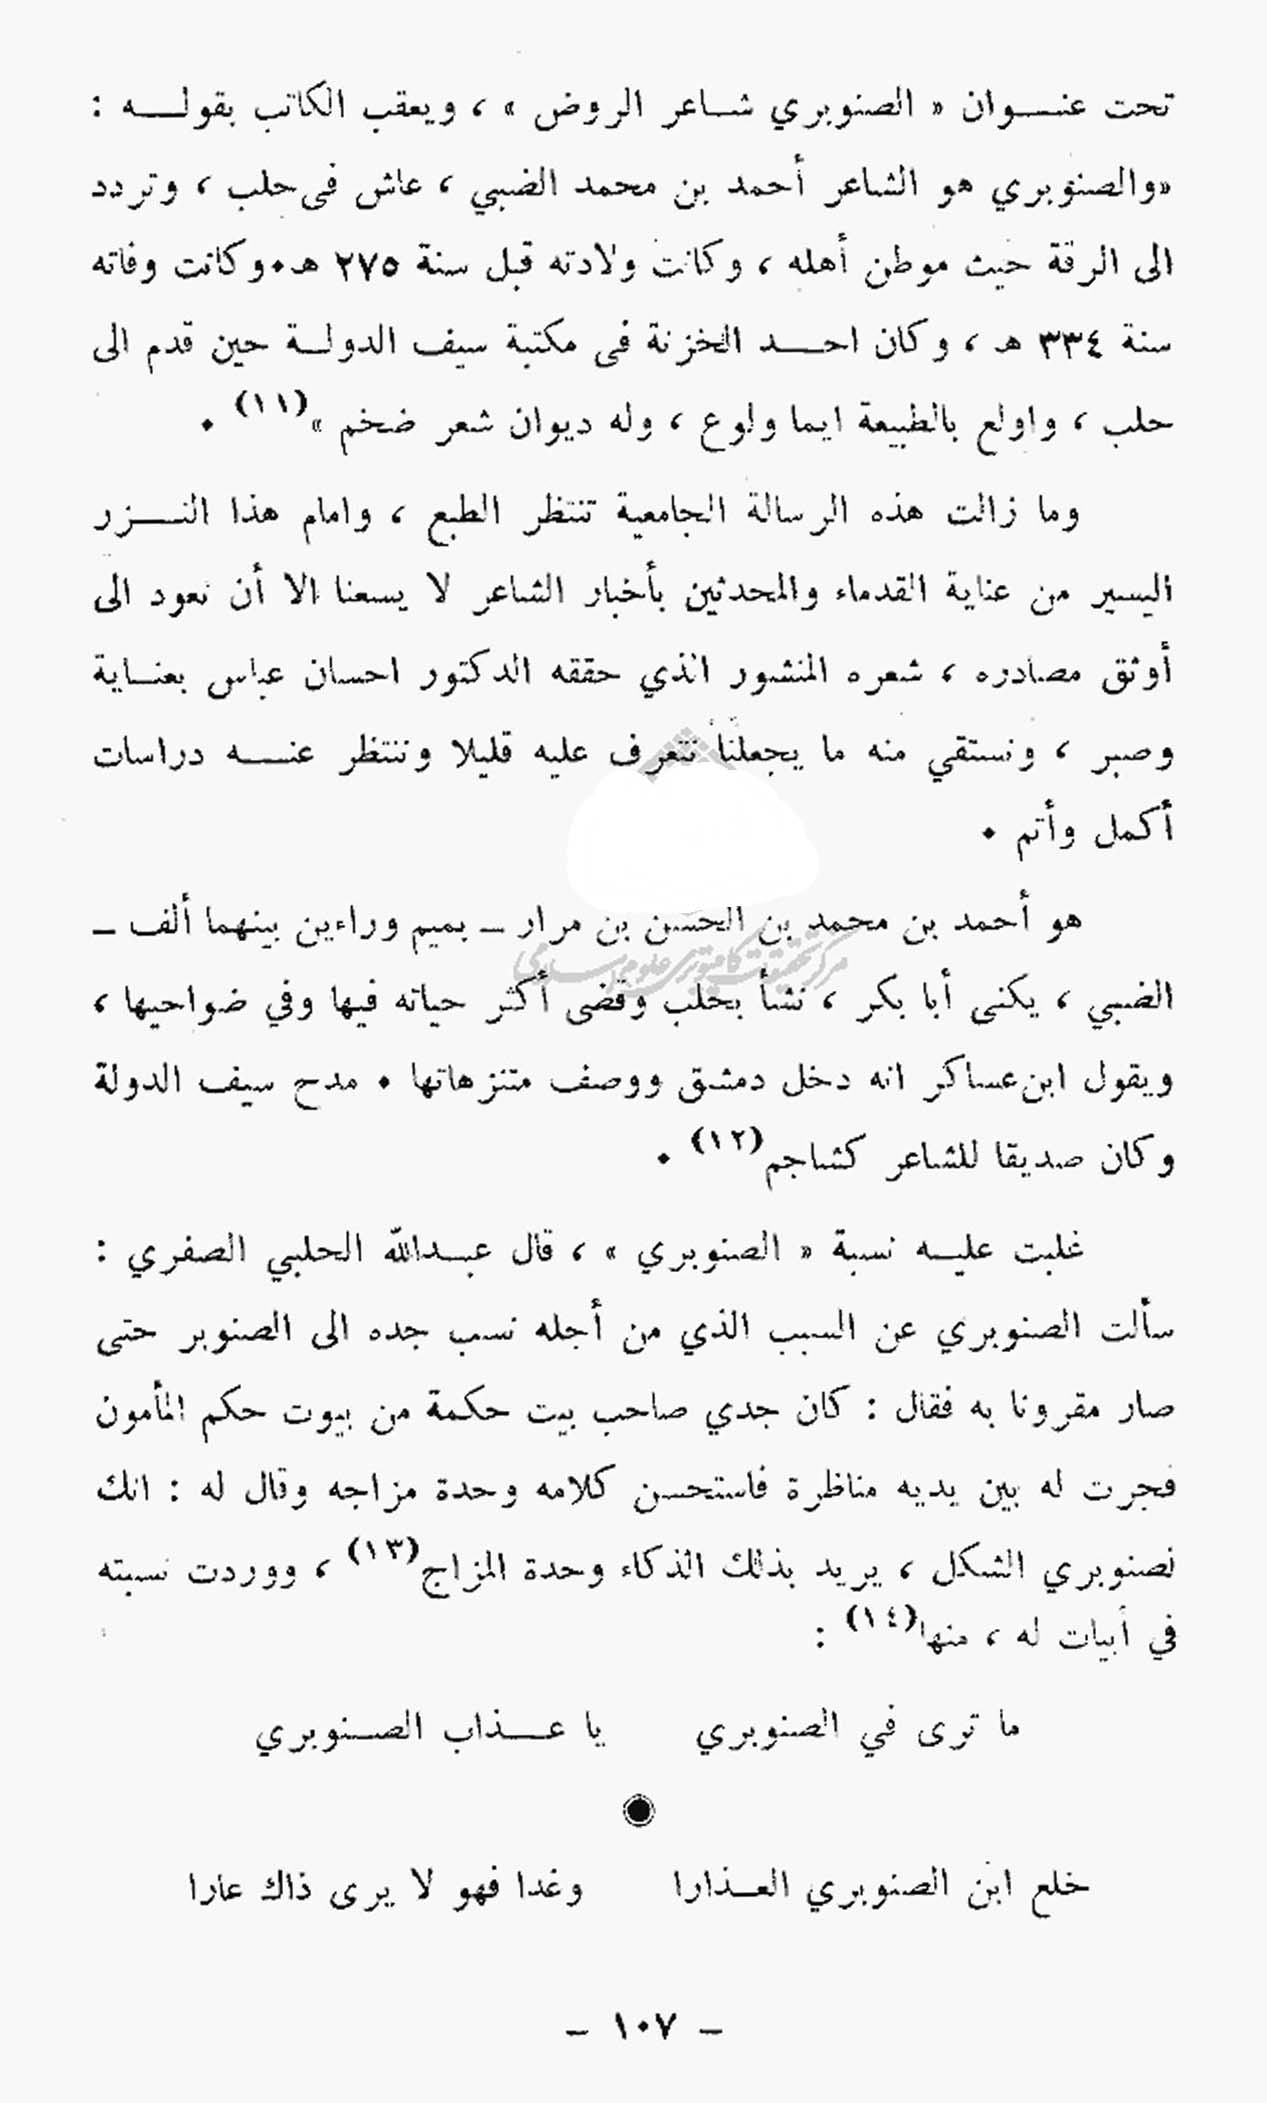 تحت عنوان « الصنوبري شاعر الروض » ، ويعقب الكاتب بقوله :
«والصنوبري هو الشاعر أحمد بن محمد الضبي ، عاش فى حلب ، وتردد
الى الرقة حيث موطن أهله ، وكانت ولادته قبل سنة ٢٧٥ هـ.وكانت وفاته
سنة ٣٣٤ هـ ، وكان احد الخزنة فى مكتبة سيف الدولة حين قدم الى
حلب ، واولع بالطبيعة ايما ولوع ، وله ديوان شعر ضخم »(١١) .
وما زالت هذه الرسالة الجامعية تنتظر الطبع ، وامام هذا النزر
اليسير من عناية القدماء والمحدثين بأخبار الشاعر لا يسعنا الا أن نعود الى
أوثق مصادره ، شعره المنشور الذي حققه الدكتور احسان عباس بعناية
وصبر ، ونستقي منه ما يجعلنا نتعرف عليه قليلا وننتظر عنه دراسات
أكمل وأتم .
هو أحمد بن محمد بن الحسن بن مرار ــ بميم وراءين بينهما ألف ــ
مركز تحقيقات كامپيوترى علوم اسلامى
الضبي ، يكنى أبا بكر ، نشأ بحلب وقضى أكثر حياته فيها وفي ضواحيها ،
ويقول ابن عساكر انه دخل دمشق ووصف متنزهاتها . مدح سيف الدولة
وكان صديقا للشاعر كشاجم(١٢) .
غلبت عليه نسبة « الصنوبري » ، قال عبدالله الحلبي الصفري :
سألت الصنوبري عن السبب الذي من أجله نسب جده الى الصنوبر حتى
صار مقرونا به فقال : كان جدي صاحب بيت حكمة من بيوت حكم المأمون
فجرت له بين يديه مناظرة فاستحسن كلامه وحدة مزاجه وقال له : انك
لصنوبري الشكل ، يريد بذلك الذكاء وحدة المزاج(١٣) ، ووردت نسبته
في أبيات له ، منها(١٤) :
ما ترى في الصنوبري يا عذاب الصنوبري
خلع ابن الصنوبري العذارا وغدا فهو لا يرى ذاك عارا
ــ ١٠٧ ــ